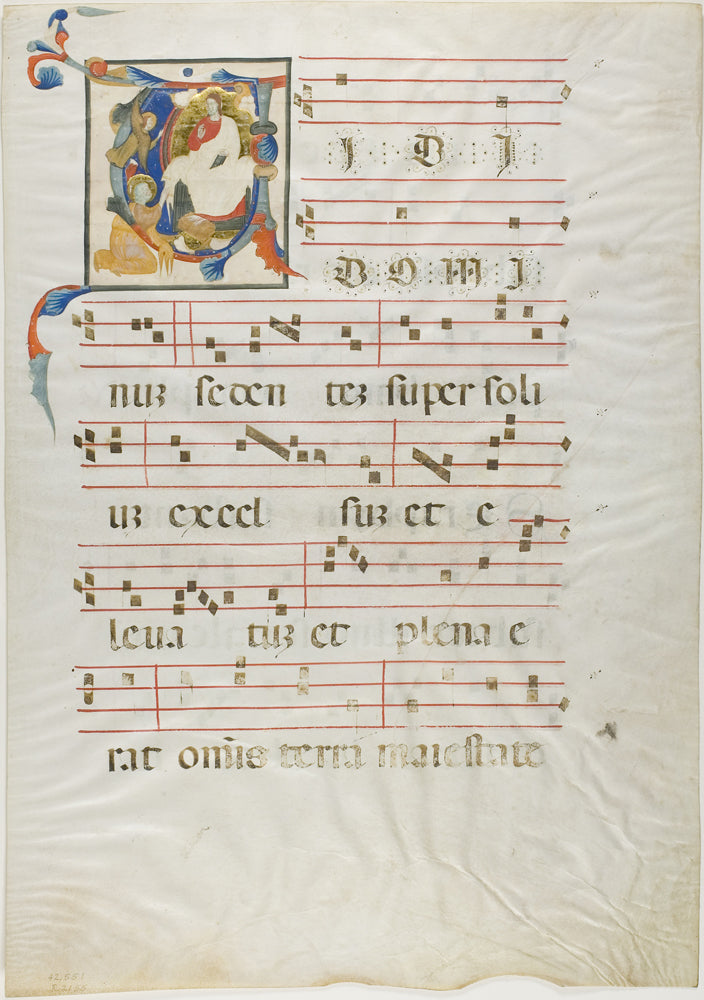 V I D I
D O M I
nuz seden tez super soli
uz excel suz et e
leua tuz et plena e
rat om̄is terra maiestate
42.551